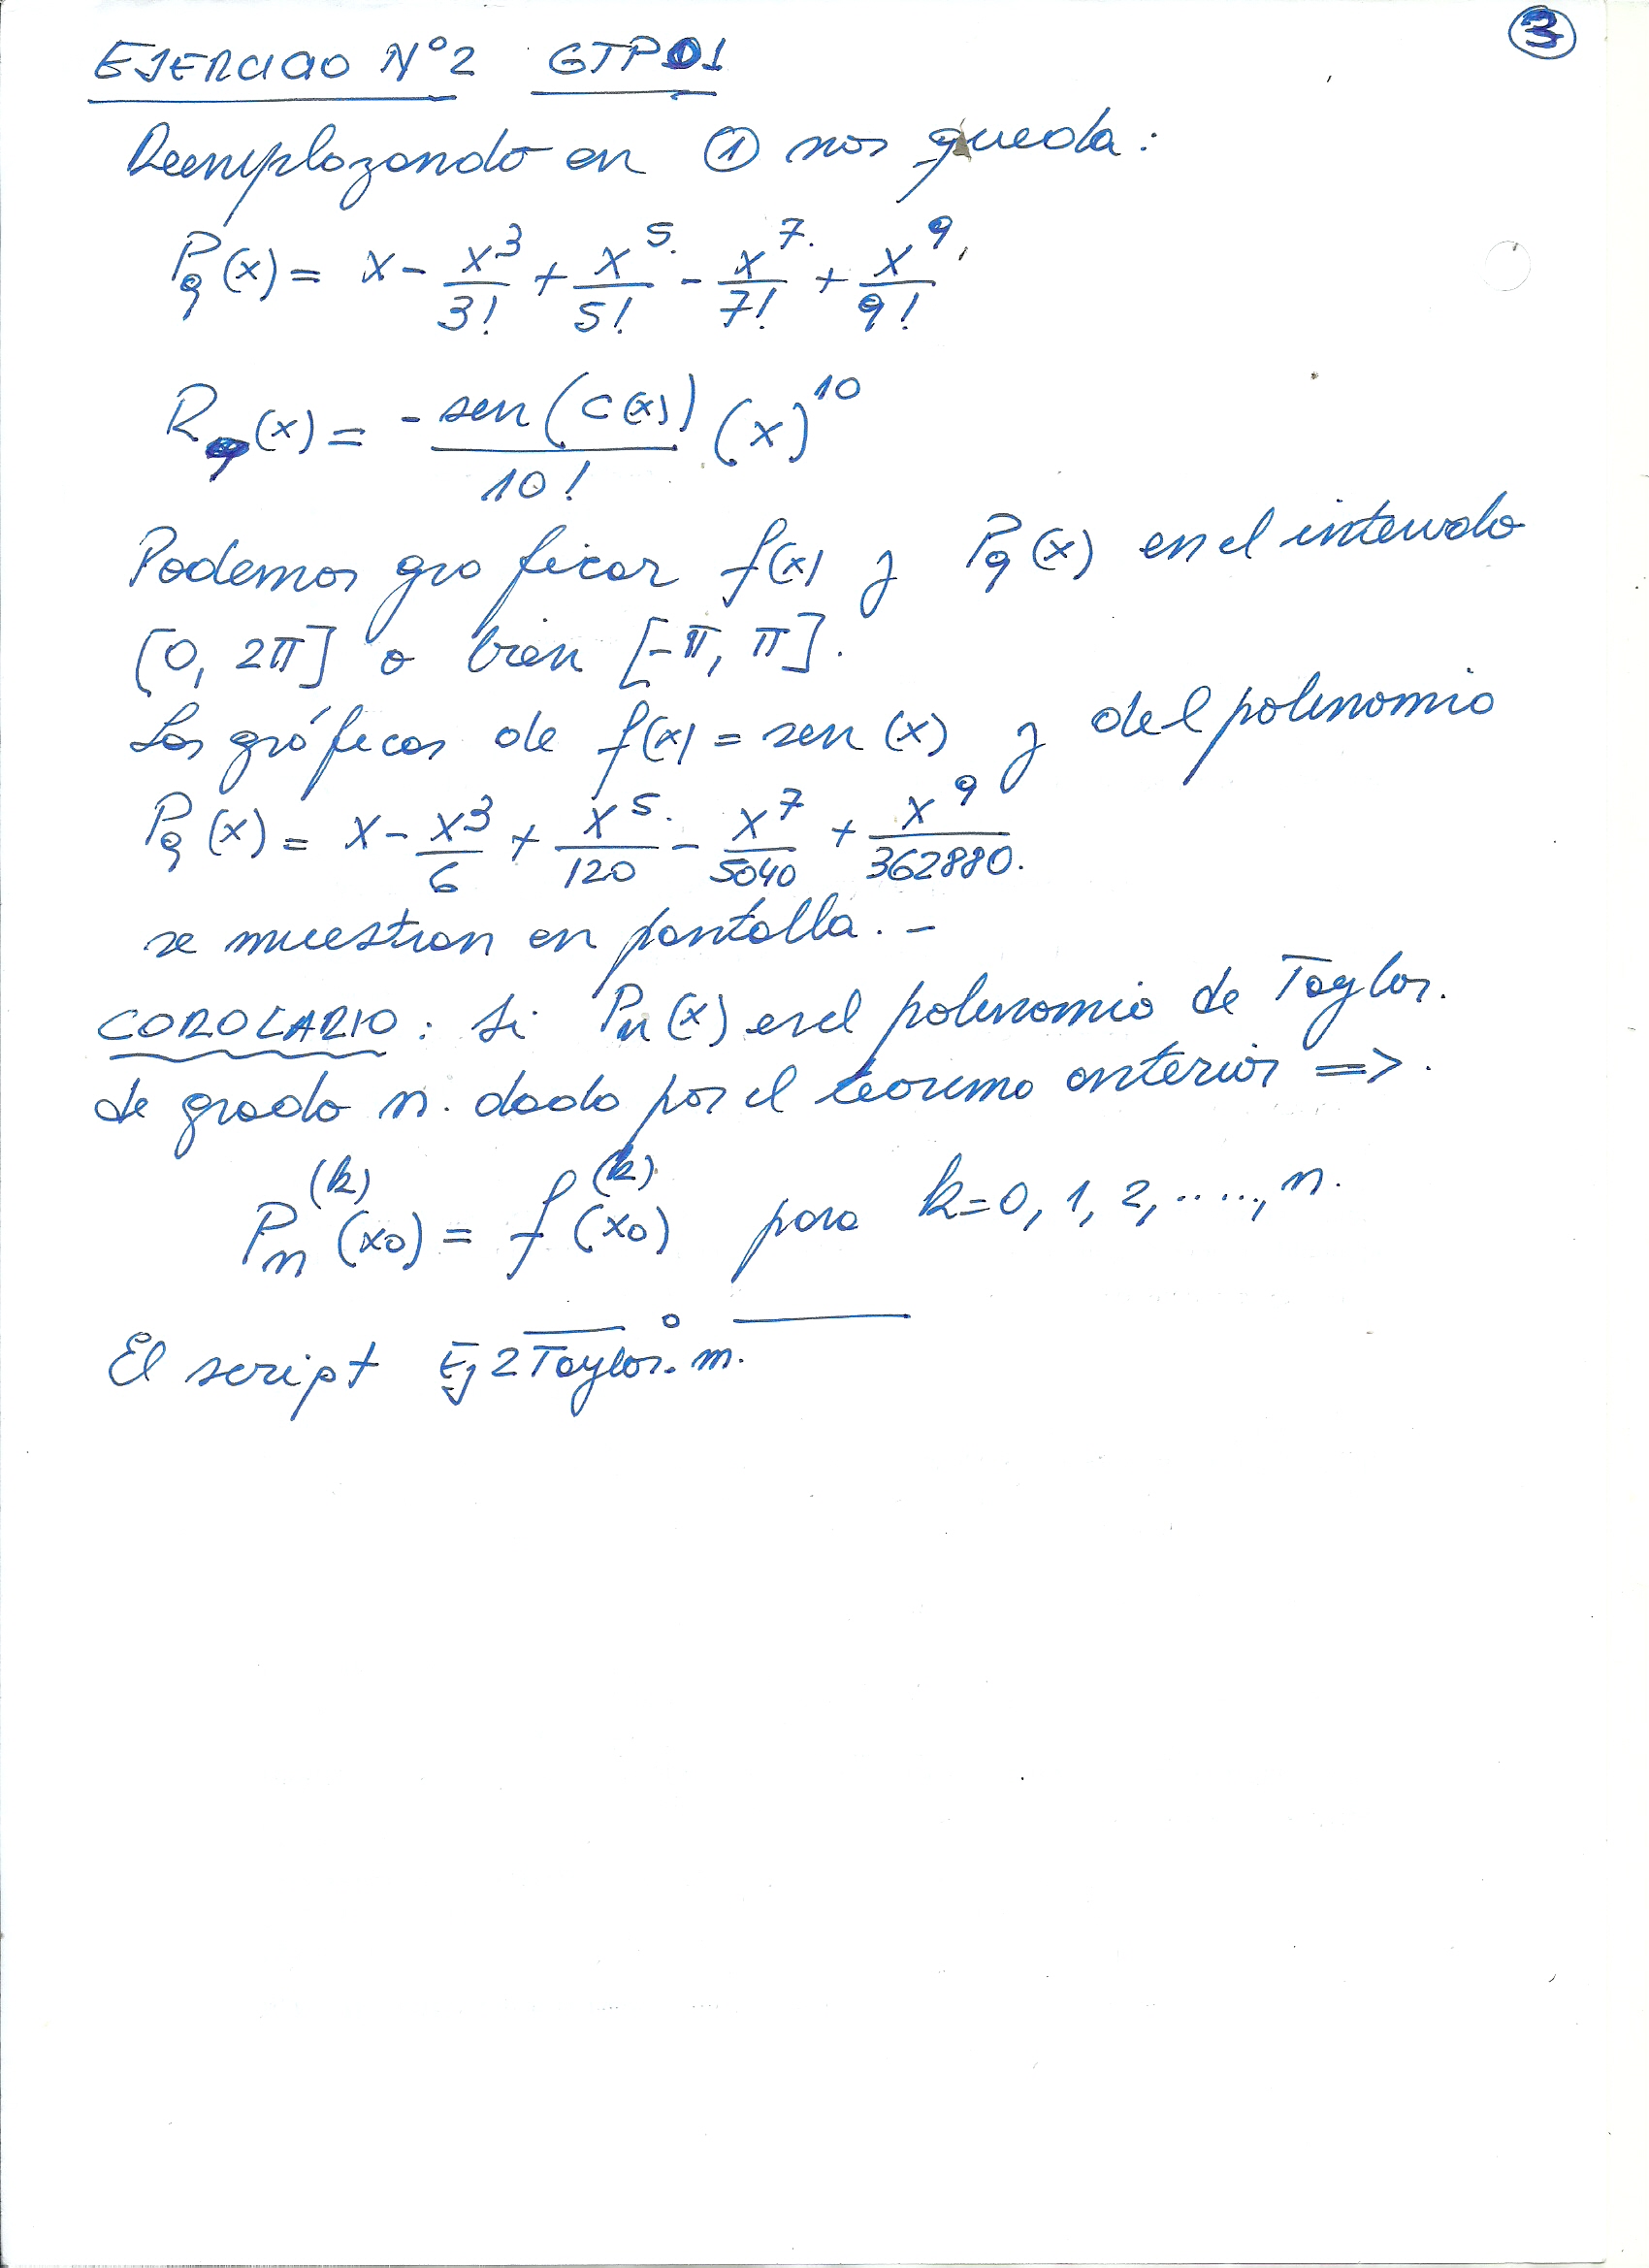 3
EJERCICIO N°2 GTP01
Reemplazando en ① nos queda:
P₉(x) = x - x³/3! + x⁵/5! - x⁷/7! + x⁹/9!
R₉(x) = - sen(c(x))/10! (x)¹⁰
Podemos graficar f(x) y P₉(x) en el intervalo
[0, 2π] o bien [-π, π].
Los gráficos de f(x) = sen(x) y del polinomio
P₉(x) = x - x³/6 + x⁵/120 - x⁷/5040 + x⁹/362880.
se muestran en pantalla. -
COROLARIO: Si Pn(x) es el polinomio de Taylor.
de grado n. dado por el teorema anterior =>.
Pn⁽ᵏ⁾(x₀) = f⁽ᵏ⁾(x₀) para k=0, 1, 2, ....., n.
El script Ej2Taylor.m.